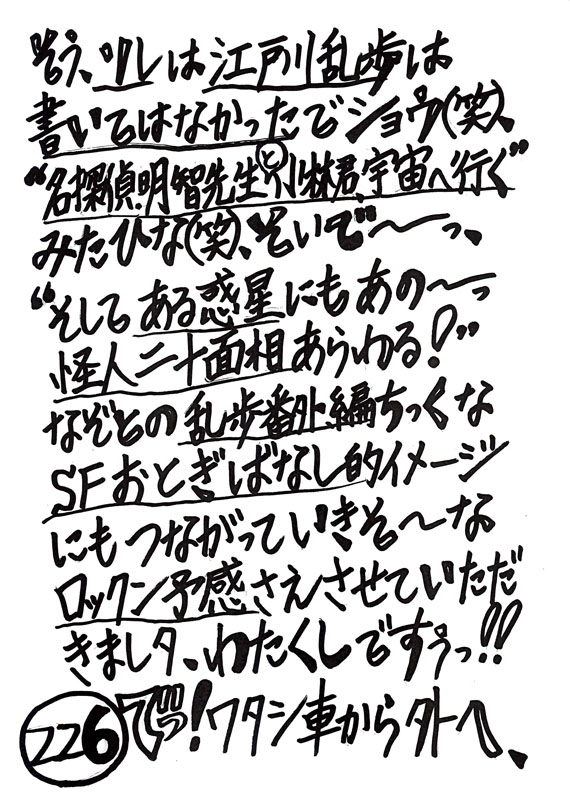 そう、ソレは江戸川乱歩は
書いてはなかったでショウ(笑)、
“名探偵明智先生と小林君、宇宙へ行く”
みたひな(笑)、そいで〜っ、
“そしてある惑星にもあの〜っ
怪人二十面相あらわる!”
なぞとの乱歩番外編ちっくな
SFおとぎばなし的イメージ
にもつながっていきそ〜な
ロックン予感さえさせていただ
きましタ、わたくしですぅっ!!
226 でっ!ワタシ車から外へ、